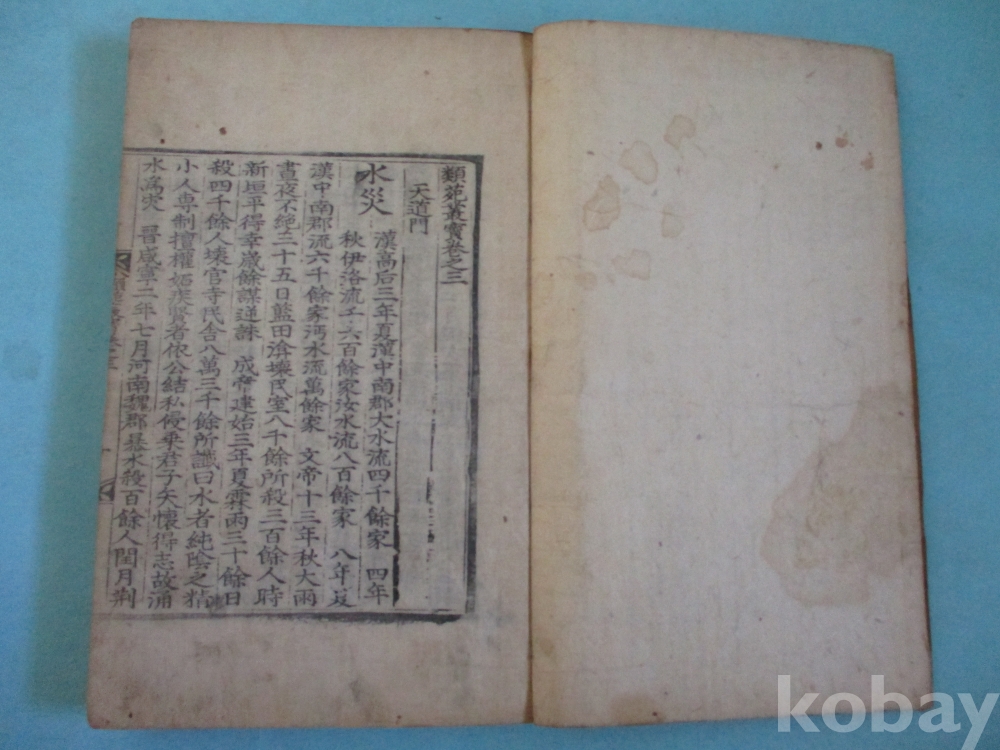 類苑叢寶卷之三
天道門
水災
漢高后三年夏漢中南郡大水流四千餘家 四年
秋伊洛流千六百餘家汝水流八百餘家 八年夏
漢中南郡流六千餘家沔水流萬餘家 文帝十三年秋大雨
晝夜不絶三十五日藍田渰壊民室八千餘所殺三百餘人時
新垣平得幸歲餘謀逆誅 成帝建始三年夏霖雨三十餘日
殺四千餘人壊官寺民舍八萬三千餘所讖曰水者純陰之精
小人専制擅權妬疾賢者依公結私侵乗君子矢懷得志故涌
水爲灾 晋咸寧二年七月河南魏郡暴水殺百餘人閏月荆
kobay